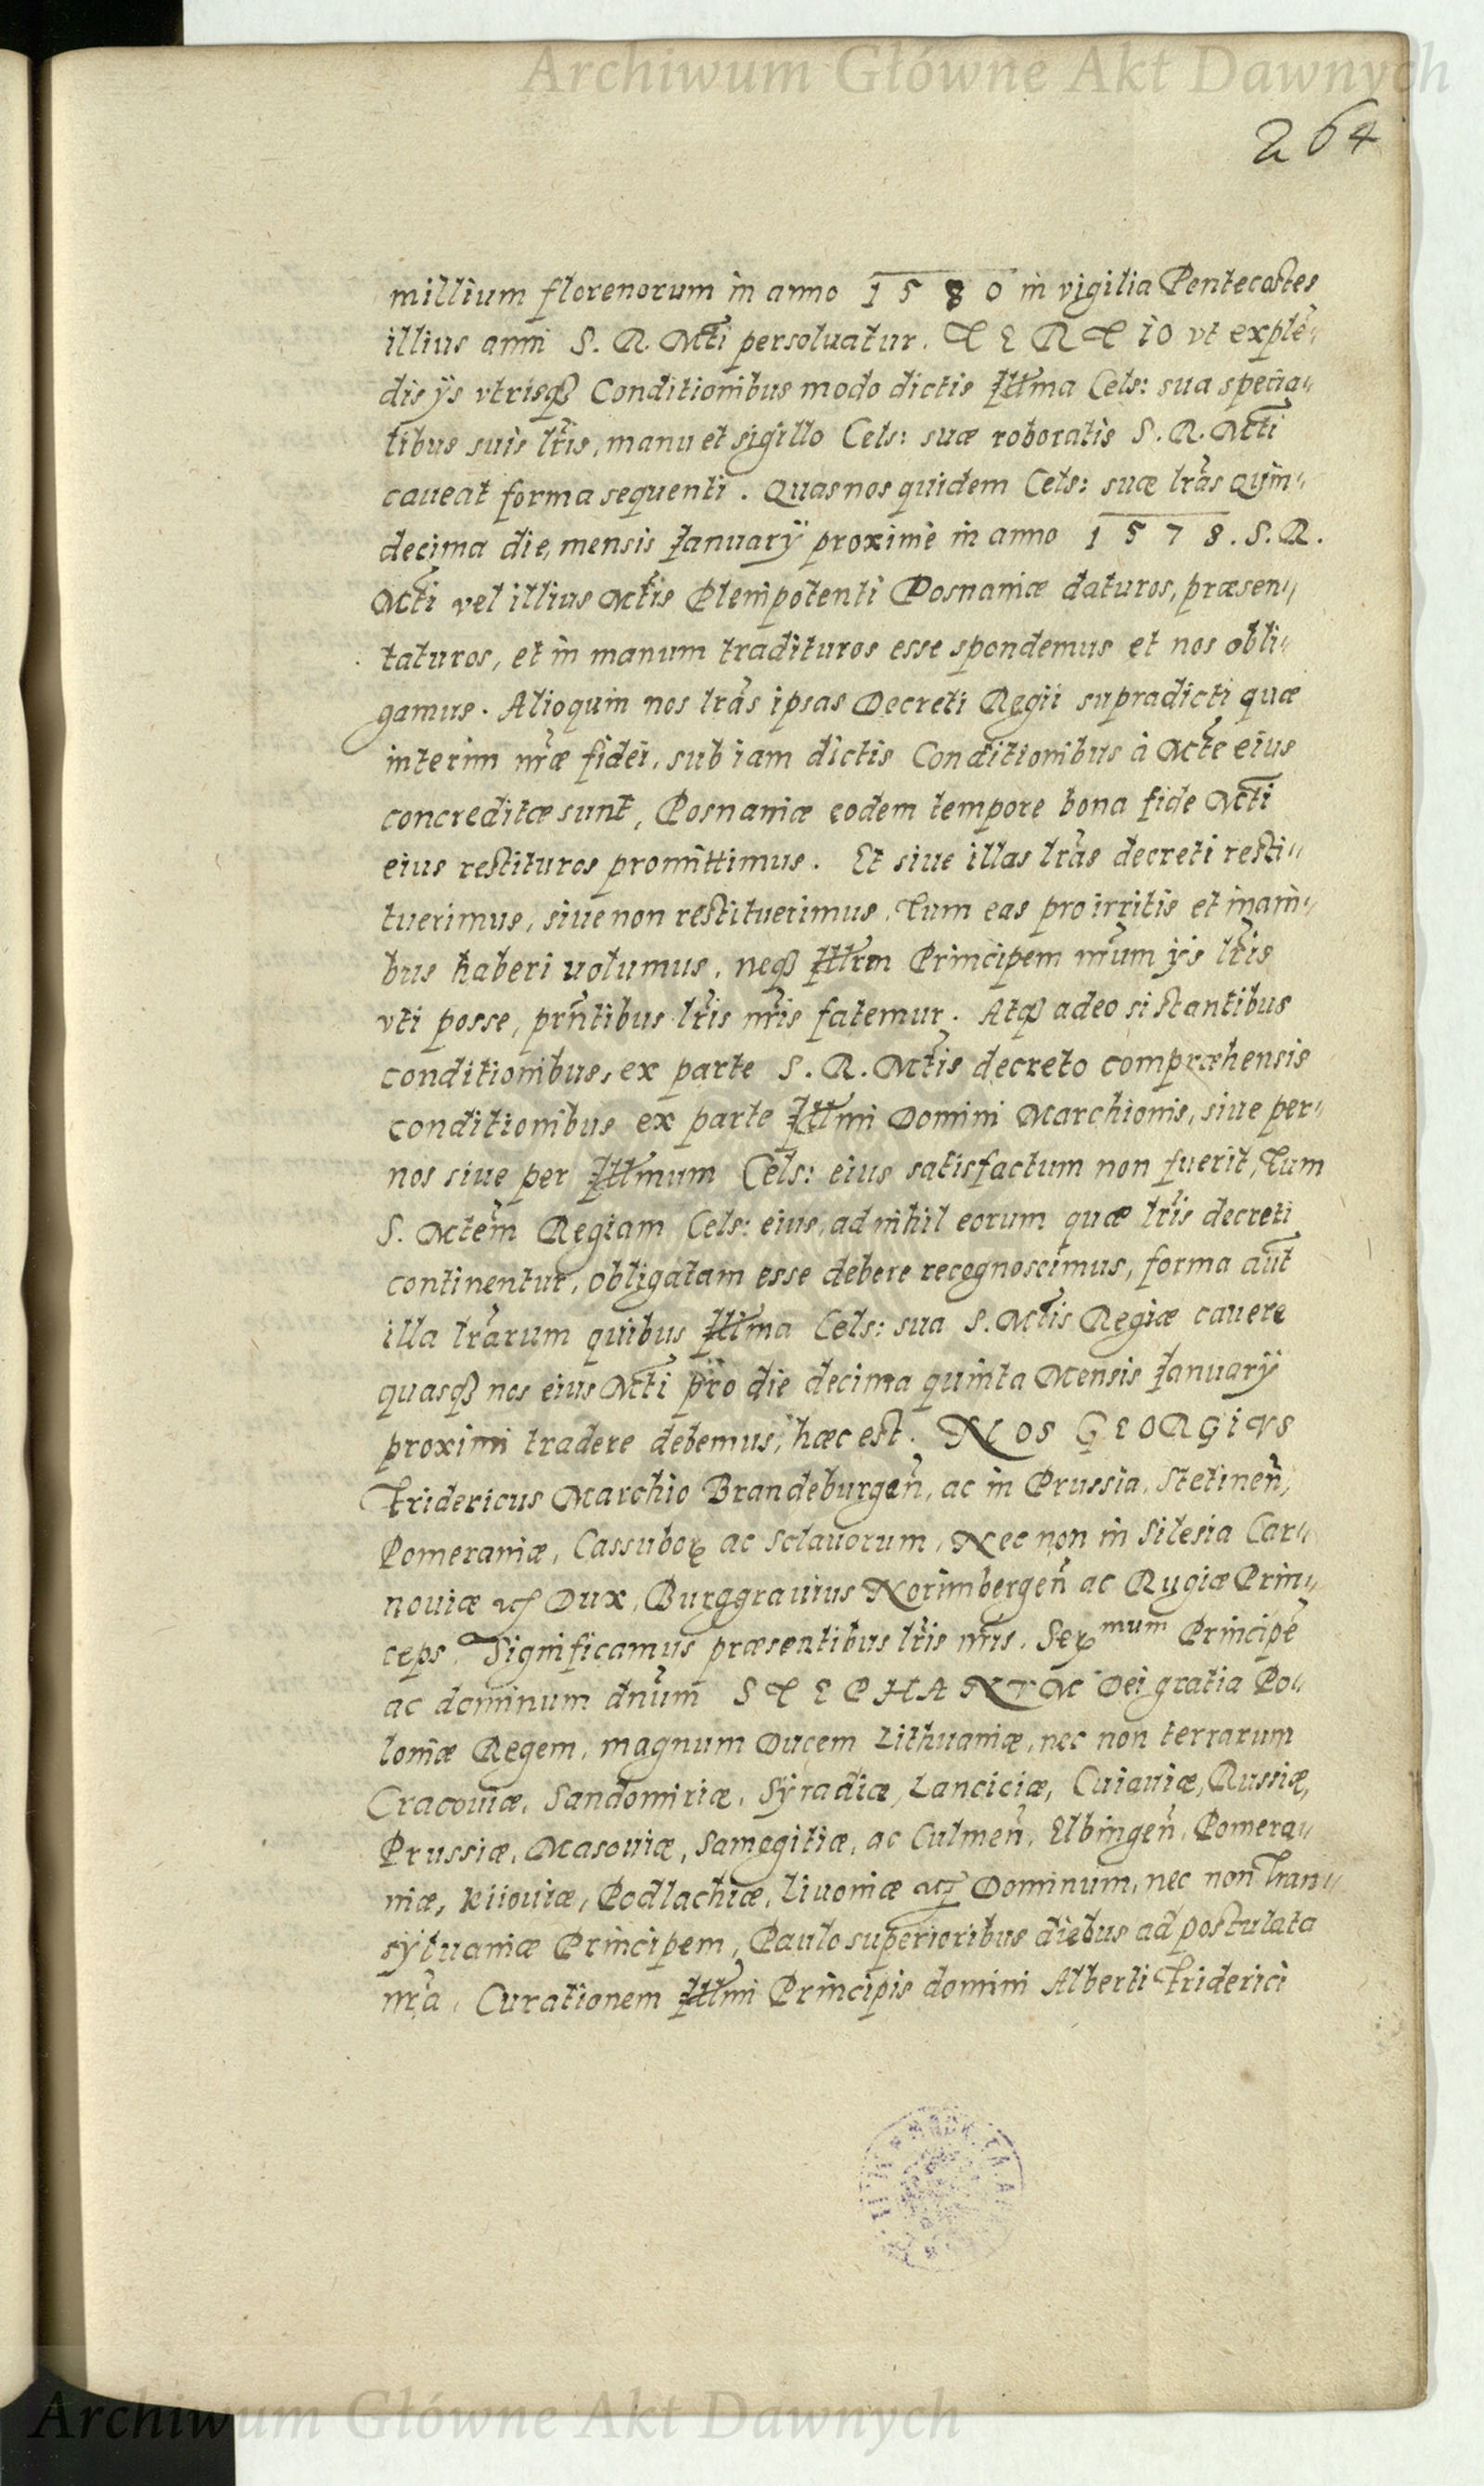 Archiwum Główne Akt Dawnych
264
millium florenorum in anno 1580 in vigilia Pentecostes
illius anni S. R. Mti persoluatur. TERTIO vt explē„
dis ijs vtrisq3 Conditionibus modo dictis Illma Cels: sua specia„
libus suis lris, manu et sigillo Cels: suæ roboratis S. R. Mti
caueat forma sequenti. Quas nos quidem Cels: suæ lras quin„
decima die, mensis Januarÿ proxime in anno 1578. S. R.
Mti vel illius Mtis Plenipotenti Posnaniæ daturos, præsen„
taturos, et in manum tradituros esse spondemus et nos obli„
gamus. Alioquin nos lras ipsas Decreti Regii supradicti quæ
interim nræ fidei, sub iam dictis Conditionibus à Mte eius
concreditæ sunt, Posnaniæ eodem tempore bona fide Mti
eius restituros promittimus. Et siue illas lras decreti resti„
tuerimus, siue non restituerimus, Tum eas pro irritis et inani„
bus haberi uolumus, neq3 Illrm Principem nrum ijs lris
vti posse, prntibus lris nris fatemur. Atq3 adeo si stantibus
conditionibus, ex parte S. R. Mtis decreto compræhensis
conditionibus ex parte Illmi Domini Marchionis, siue per„
nos siue per Illmum Cels: eius satisfactum non fuerit, Tum
S. Mtem Regiam Cels: eius, ad nihil eorum quæ lris decreti
continentur, obligatam esse debere recognoscimus, forma aut
illa lrarum quibus Illma Cels: sua S. Mtis Regiæ cauere
quasq3 nos eius Mti pro die decima quinta Mensis Januarÿ
proximi tradere debemus, hæc est. NOS GEORGIVS
Fridericus Marchio Brandeburgen, ac in Prussia, Stetinen,
Pomeraniæ, Cassuboꝝ ac Sclauorum, Nec non in Silesia Car„
nouiæ etc Dux, Burggrauius Norimbergen ac Rugiæ Prin„
ceps. Significamus præsentibus lris nris, Serꝫmum Principē
ac dominum dnum STEPHANVM Dei gratia Po„
loniæ Regem, magnum Ducem Lithuaniæ, nec non terrarum
Cracouiæ, Sandomiriæ, Syradiæ, Lanciciæ, Cuiauiæ, Russiæ,
Prussiæ, Masouiæ, Samogitiæ, ac Culmen, Elbingen, Pomera„
niæ, Kiiouiæ, Podlachiæ, Liuoniæ etc Dominum, nec non Tran„
syluaniæ Principem, Paulo superioribus diebus ad postulata
nra, Curationem Illmi Principis domini Alberti Friderici
Archiwum Główne Akt Dawnych